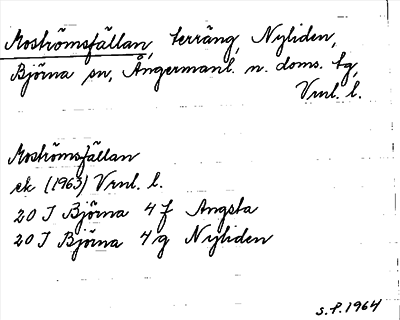 Moströmsfällan, terräng, Nyliden,
Björna sn, Ångermanl. n. doms. tg,
Vrnl. l.
Moströmsfällan
ek (1963) Vrnl. l.
20 J Björna 4 f Angsta
20 J Björna 4 g Nyliden
S.P. 1964